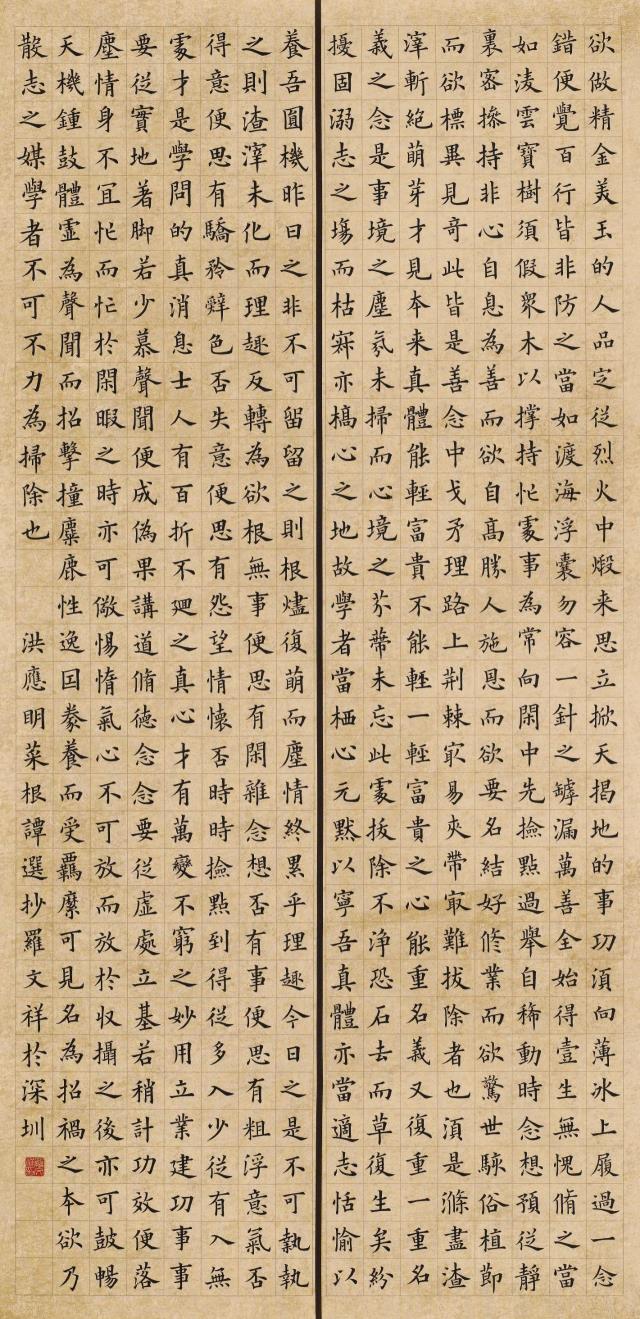 欲做精金美玉的人品定從烈火中煅来思立掀天揭地的事功須向薄冰上履過一念
錯便覺百行皆非防之當如渡海浮囊勿容一針之罅漏萬善全始得壹生無愧脩之當
如淩雲寳樹須假衆木以撐持忙處事為常向閑中先撿點過舉自稀動時念想預從靜
裏密摻持非心自息為善而欲自高勝人施恩而欲要名結好修業而欲驚世駭俗植節
而欲標異見奇此皆是善念中戈矛理路上荆棘最易夾帶最難拔除者也須是滌盡渣
滓斬絶萌芽才見本来真體能輕富貴不能輕一輕富貴之心能重名義又復重一重名
義之念是事境之塵氛未掃而心境之芥蒂未忘此處拔除不净恐石去而草復生矣紛
擾固溺志之場而枯寂亦槁心之地故學者當栖心元默以寧吾真體亦當適志恬愉以
養吾圓機昨日之非不可留留之則根燼復萌而塵情終累乎理趣今日之是不可執執
之則渣滓未化而理趣反轉為欲根無事便思有閑雜念想否有事便思有粗浮意氣否
得意便思有驕矜辭色否失意便思有怨望情懷否時時撿點到得從多入少從有入無
處才是學問的真消息士人有百折不廻之真心才有萬變不窮之妙用立業建功事事
要從實地著脚若少慕聲聞便成偽果講道脩德念念要從虛處立基若稍計功效便落
塵情身不宜忙而忙於閑暇之時亦可儆惕惰氣心不可放而放於収攝之後亦可鼓暢
天機鍾鼓體靈為聲聞而招擊撞麋鹿性逸因豢養而受羈縻可見名為招禍之本欲乃
散志之媒學者不可不力為掃除也 洪應明菜根譚選抄羅文祥於深圳